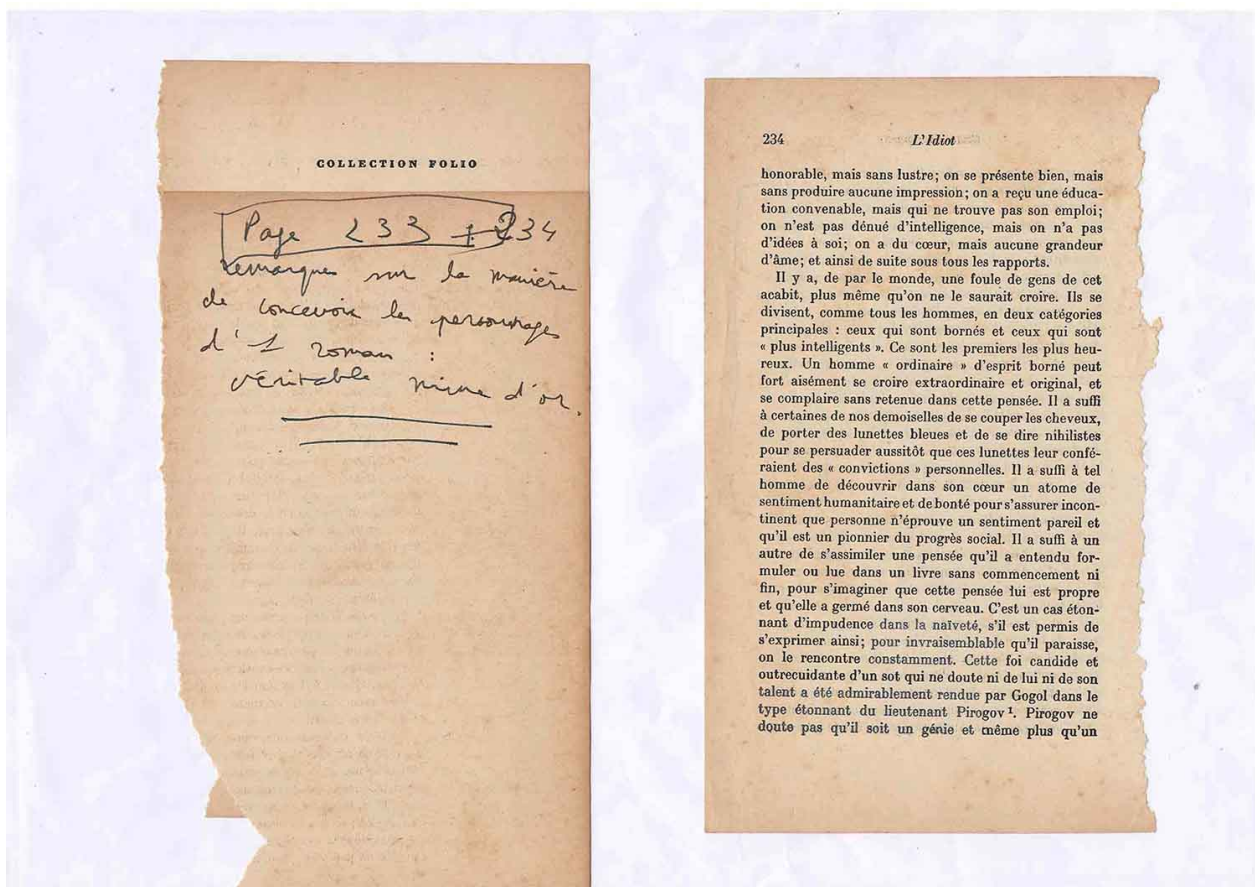 COLLECTION FOLIO
Page 233 + 234
Remarques sur la manière
de concevoir les personnages
d'1 roman :
véritable mine d'or.
234 L'Idiot
honorable, mais sans lustre; on se présente bien, mais
sans produire aucune impression; on a reçu une éduca-
tion convenable, mais qui ne trouve pas son emploi;
on n'est pas dénué d'intelligence, mais on n'a pas
d'idées à soi; on a du cœur, mais aucune grandeur
d'âme; et ainsi de suite sous tous les rapports.
Il y a, de par le monde, une foule de gens de cet
acabit, plus même qu'on ne le saurait croire. Ils se
divisent, comme tous les hommes, en deux catégories
principales : ceux qui sont bornés et ceux qui sont
« plus intelligents ». Ce sont les premiers les plus heu-
reux. Un homme « ordinaire » d'esprit borné peut
fort aisément se croire extraordinaire et original, et
se complaire sans retenue dans cette pensée. Il a suffi
à certaines de nos demoiselles de se couper les cheveux,
de porter des lunettes bleues et de se dire nihilistes
pour se persuader aussitôt que ces lunettes leur confé-
raient des « convictions » personnelles. Il a suffi à tel
homme de découvrir dans son cœur un atome de
sentiment humanitaire et de bonté pour s'assurer incon-
tinent que personne n'éprouve un sentiment pareil et
qu'il est un pionnier du progrès social. Il a suffi à un
autre de s'assimiler une pensée qu'il a entendu for-
muler ou lue dans un livre sans commencement ni
fin, pour s'imaginer que cette pensée lui est propre
et qu'elle a germé dans son cerveau. C'est un cas éton-
nant d'impudence dans la naïveté, s'il est permis de
s'exprimer ainsi; pour invraisemblable qu'il paraisse,
on le rencontre constamment. Cette foi candide et
outrecuidante d'un sot qui ne doute ni de lui ni de son
talent a été admirablement rendue par Gogol dans le
type étonnant du lieutenant Pirogov¹. Pirogov ne
doute pas qu'il soit un génie et même plus qu'un